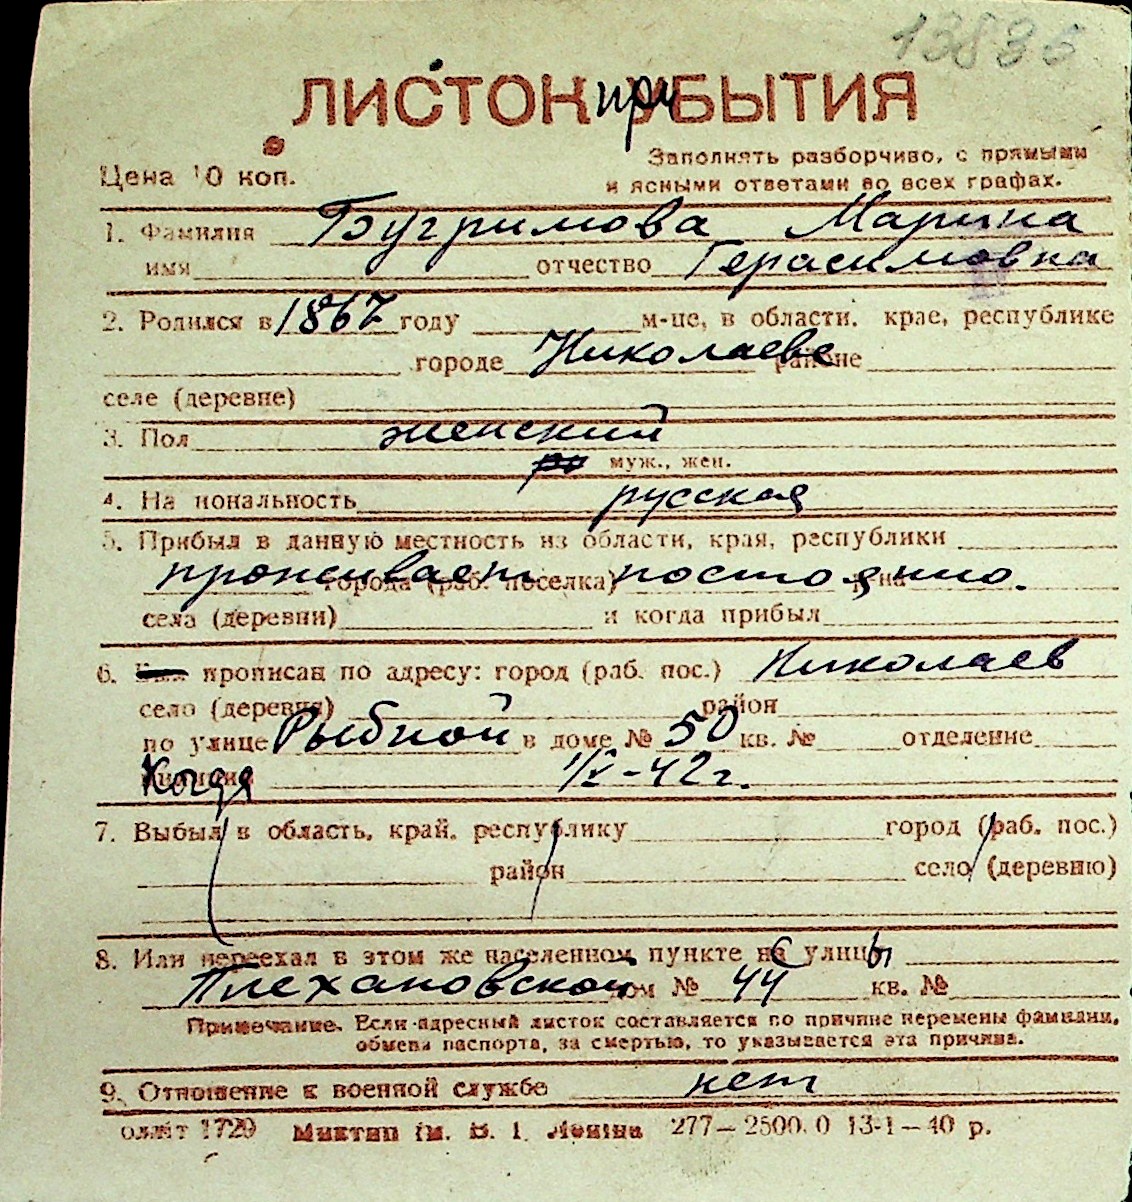 13835
ЛИСТОК при УБЫТИЯ
Цена 10 коп.
Заполнять разборчиво, с прямыми
и ясными ответами во всех графах.
1. Фамилия Бугримова Марина
имя отчество Герасимовна
2. Родился в 1867 году м-це, в области, крае, республике
городе Николаеве районе
селе (деревне)
3. Пол женский
муж., жен.
4. На иональность русская
5. Прибыл в данную местность из области, края, республики
проживает города (раб. поселка) постоянно.
села (деревни) и когда прибыл
6. Был прописан по адресу: город (раб. пос.) Николаев
село (деревня) район
по улице Рыбной в доме № 50 кв. № отделение
Когда 1/X-42 г.
7. Выбыл в область, край, республику город (раб. пос.)
район село (деревню)
8. Или переехал в этом же населенном пункте с улицы
Плехановской дом № 44 кв. №
Примечание. Если адресный листок составляется по причине перемены фамилии,
обмена паспорта, за смертью, то указывается эта причина.
9. Отношение к военной службе нет
1720 Миктип ім. В. І. Леніна 277—2500.0 13-1—40 р.